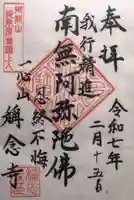 奉拝
令和七年
二月十五日
我行精進
南無阿弥陀佛
忍終不悔
一心山
稱念寺